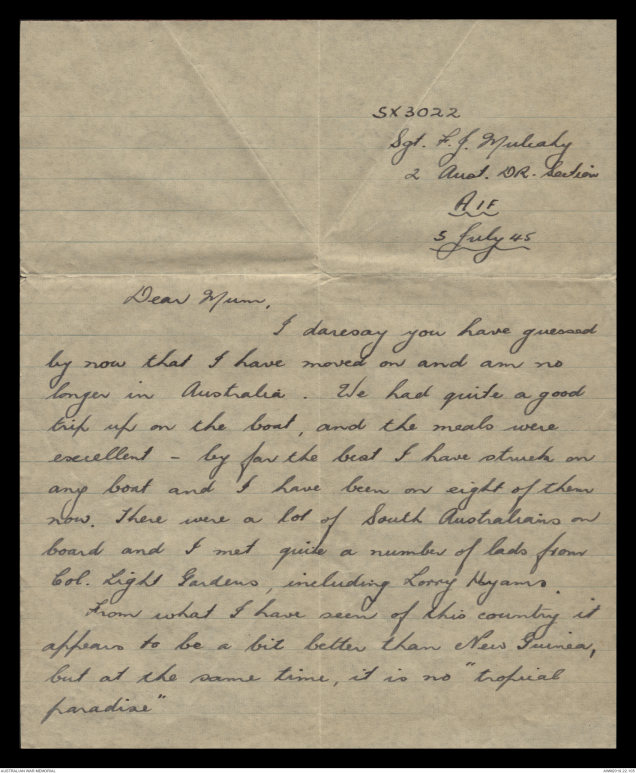 SX3022
Sgt. F. J. Mulcahy
2 Aust. DR. Section
AIF
5 July 45
Dear Mum,
I daresay you have guessed
by now that I have moved on and am no
longer in Australia. We had quite a good
trip up on the boat, and the meals were
excellent - by far the best I have struck on
any boat and I have been on eight of them
now. There were a lot of South Australians on
board and I met quite a number of lads from
Col. Light Gardens, including Lorry Hyams.
From what I have seen of this country it
appears to be a bit better than New Guinea,
but at the same time, it is no "tropical
paradise"
AUSTRALIAN WAR MEMORIAL